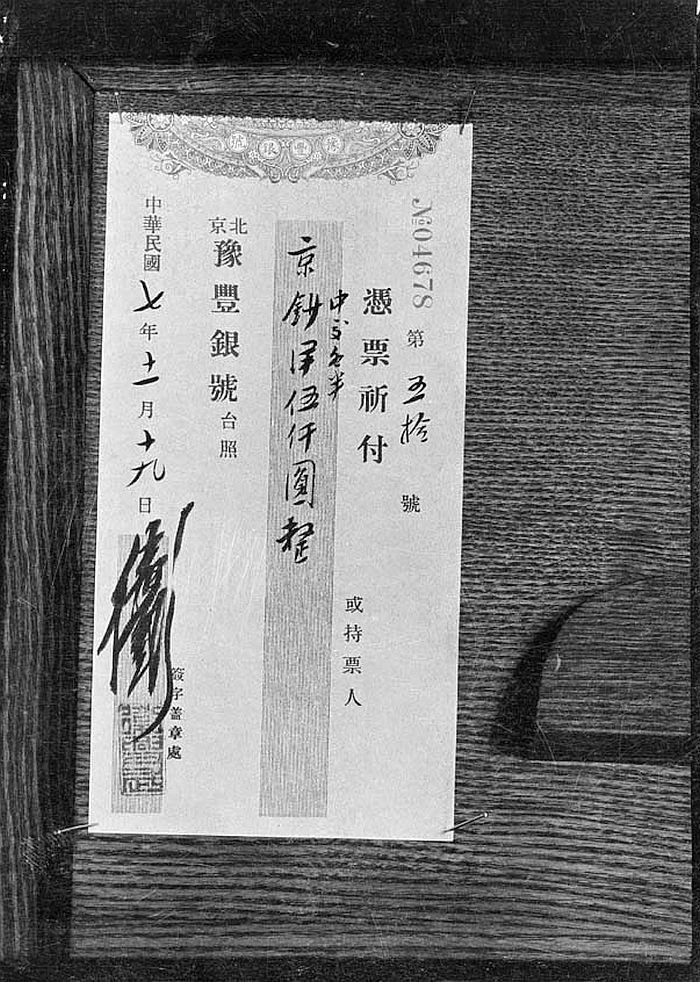 豫豐銀號
№04678
第五拾號
憑票祈付
或持票人
中交各半
京鈔伍仟圓整
北京
豫豐銀號台照
中華民國七年十一月十九日
簽字蓋章處